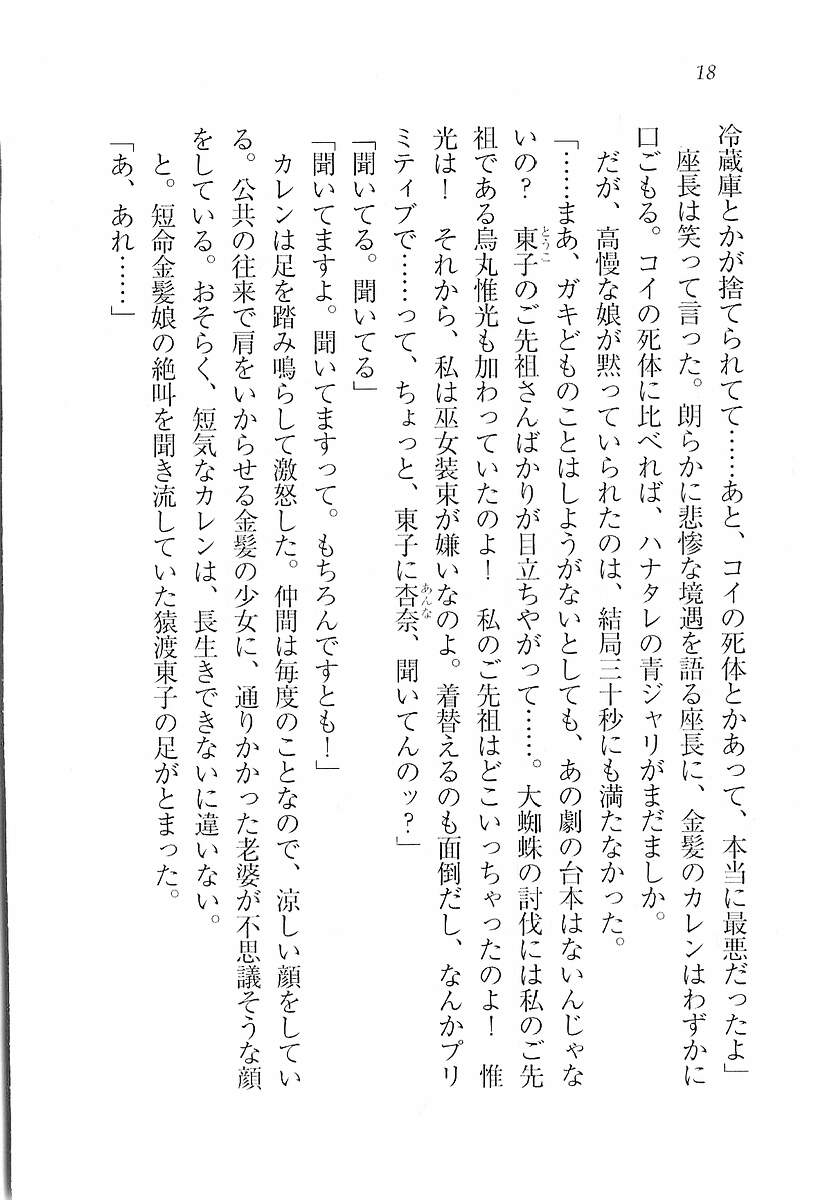 18
冷蔵庫とかが捨てられてて……あと、コイの死体とかあって、本当に最悪だったよ」
　座長は笑って言った。朗らかに悲惨な境遇を語る座長に、金髪のカレンはわずかに
口ごもる。コイの死体に比べれば、ハナタレの青ジャリがまだましか。
　だが、高慢な娘が黙っていられたのは、結局三十秒にも満たなかった。
「……まあ、ガキどものことはしようがないとしても、あの劇の台本はないんじゃな
いの？　東子のご先祖さんばかりが目立ちやがって……。大蜘蛛の討伐には私のご先
祖である烏丸惟光も加わっていたのよ！　私のご先祖はどこいっちゃったのよ！　惟
光は！　それから、私は巫女装束が嫌いなのよ。着替えるのも面倒だし、なんかプリ
ミティブで……って、ちょっと、東子に杏奈、聞いてんのッ？」
「聞いてる。聞いてる」
「聞いてますよ。聞いてますって。もちろんですとも！」
　カレンは足を踏み鳴らして激怒した。仲間は毎度のことなので、涼しい顔をしてい
る。公共の往来で肩をいからせる金髪の少女に、通りかかった老婆が不思議そうな顔
をしている。おそらく、短気なカレンは、長生きできないに違いない。
　と。短命金髪娘の絶叫を聞き流していた猿渡東子の足がとまった。
「あ、あれ……」
とうこ
あんな